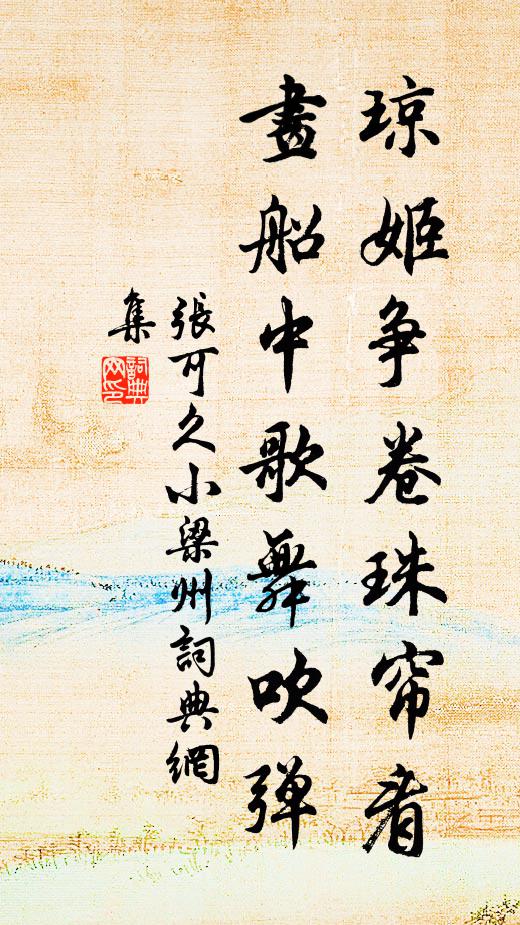 琼姬争卷珠帘看
畫船中歌舞吹弹
張可久小梁州詞典網
集
詞典
网印